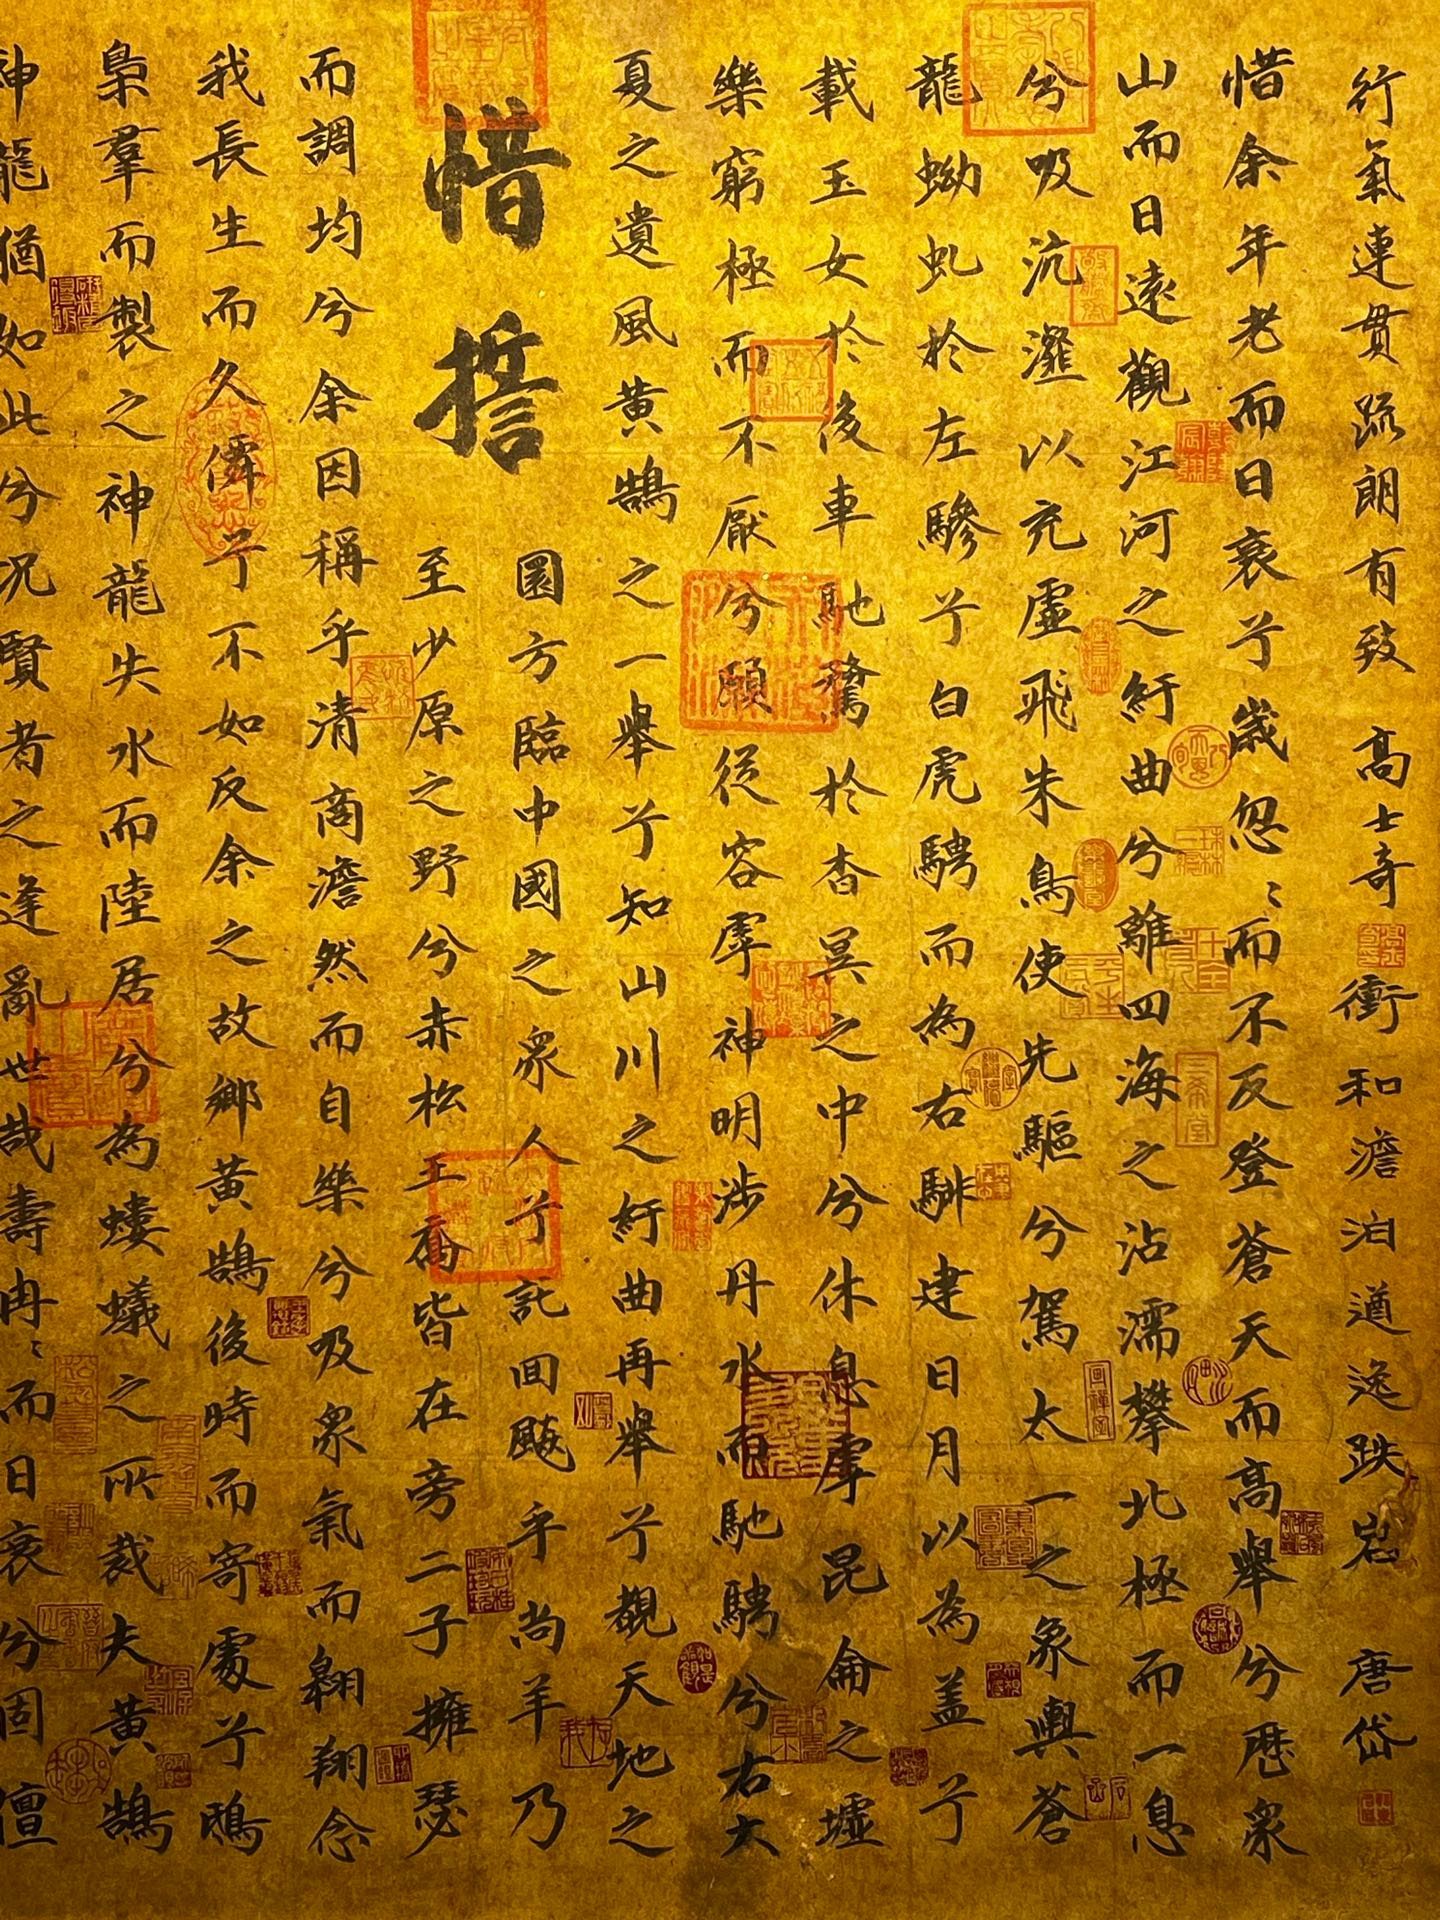 行氣連貫疏朗有致 高士奇 衝和澹泊遒逸跌宕 唐岱
惜余年老而日衰兮歲忽〻而不反登蒼天而高舉兮歷眾
山而日遠觀江河之紆曲兮離四海之沾濡攀北極而一息
兮吸沆瀣以充虛飛朱鳥使先驅兮駕太一之象輿蒼
龍蚴虬於左驂兮白虎騁而為右騑建日月以為盖兮
載玉女於後車馳騖於杳冥之中兮休息虖昆侖之墟
樂窮極而不厭兮願從容虖神明涉丹水而馳騁兮右大
夏之遺風黃鵠之一舉兮知山川之紆曲再舉兮覩天地之
圜方臨中國之眾人兮託回飈乎尚羊乃
惜誓
至少原之野兮赤松王喬皆在旁二子擁瑟
而調均兮余因稱乎清商澹然而自樂兮吸眾氣而翱翔念
我長生而久僊兮不如反余之故鄉黃鵠後時而寄處兮鴟
梟羣而製之神龍失水而陸居兮為螻蟻之所裁夫黃鵠
神龍猶如此兮況賢者之逢亂世哉壽冉〻而日衰兮固儃